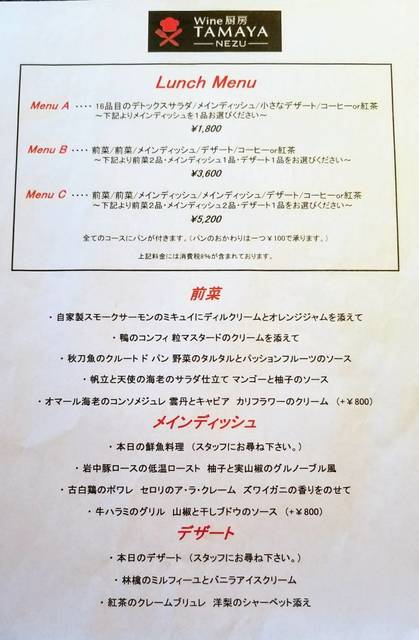 Wine 厨房
TAMAYA
NEZU
Lunch Menu
Menu A ････ 16品目のデトックスサラダ/メインディッシュ/小さなデザート/コーヒーor紅茶
～下記よりメインディッシュを1品お選びください～
¥1,800
Menu B ････ 前菜/前菜/メインディッシュ/デザート/コーヒーor紅茶
～下記より前菜2品・メインディッシュ1品・デザート1品をお選びください～
¥3,600
Menu C ････ 前菜/前菜/メインディッシュ/メインディッシュ/デザート/コーヒーor紅茶
～下記より前菜2品・メインディッシュ2品・デザート1品をお選びください～
¥5,200
全てのコースにパンが付きます。（パンのおかわりは一つ￥100で承ります。）
上記料金には消費税8%が含まれております。
前菜
・自家製スモークサーモンのミキュイにディルクリームとオレンジジャムを添えて
・鴨のコンフィ 粒マスタードのクリームを添えて
・秋刀魚のクルート ド パン 野菜のタルタルとパッションフルーツのソース
・帆立と天使の海老のサラダ仕立て マンゴーと柚子のソース
・オマール海老のコンソメジュレ 雲丹とキャビア カリフラワーのクリーム （+￥800）
メインディッシュ
・本日の鮮魚料理 （スタッフにお尋ね下さい。）
・岩中豚ロースの低温ロースト 柚子と実山椒のグルノーブル風
・古白鶏のポワレ セロリのア・ラ・クレーム ズワイガニの香りをのせて
・牛ハラミのグリル 山椒と干しブドウのソース （+￥800）
デザート
・本日のデザート （スタッフにお尋ね下さい。）
・林檎のミルフィーユとバニラアイスクリーム
・紅茶のクレームブリュレ 洋梨のシャーベット添え